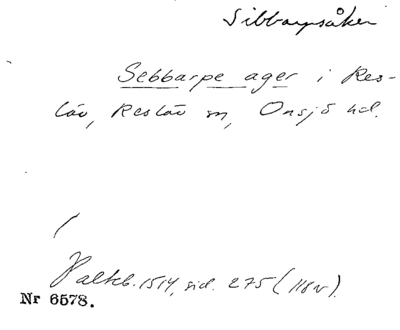 Sibbarpsåker
Sebbarpe ager i Res-
löv, Reslöv sn, Onsjö hd.
Palteb. 1514, sid. 275 (118v).
Nr 6578.